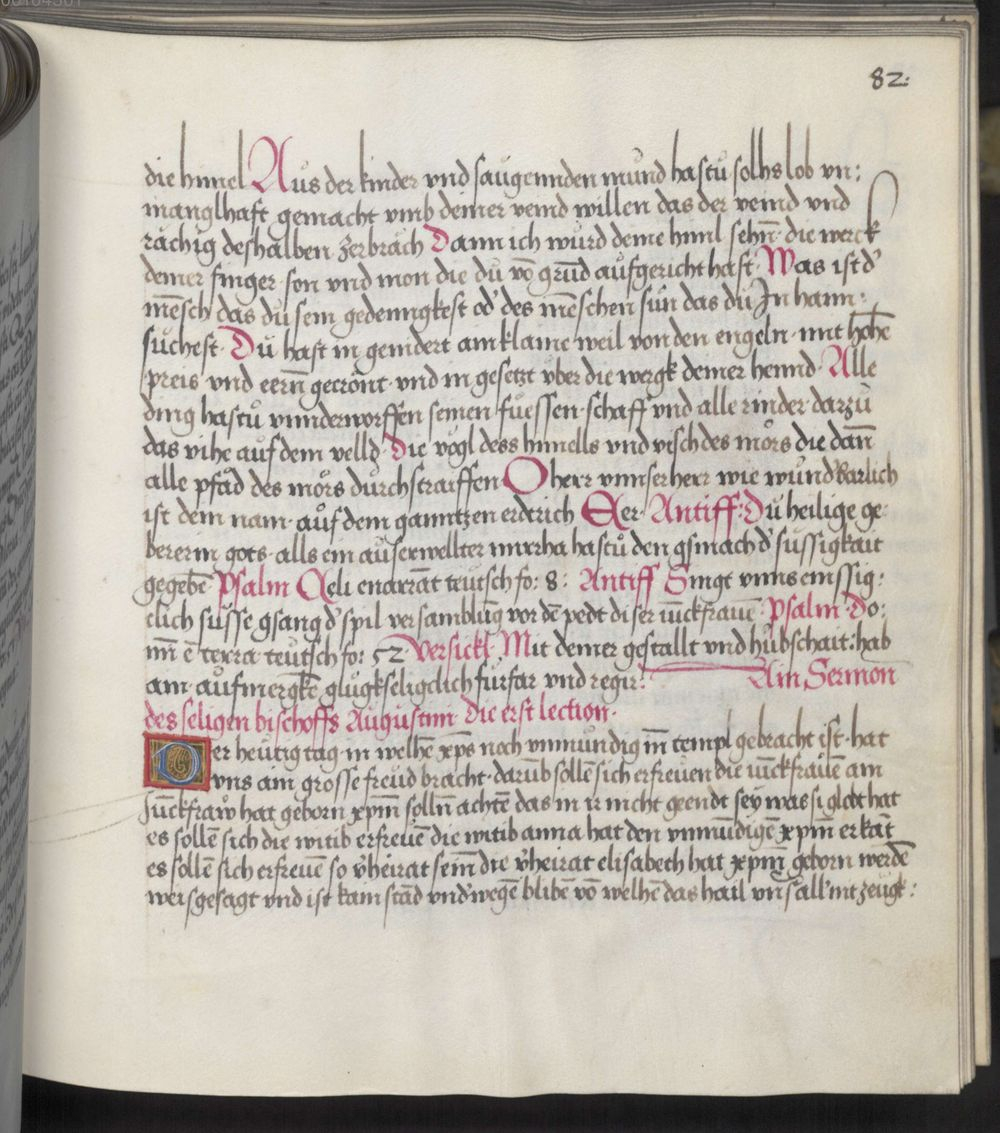 82:
die himel Aus der kinder vnd saugennden mund hastu solhs lob vn:
manglhaft gemacht vmb deiner veind willen das der veind vnd
rachig deshalben zerbrach Dann ich würd deine himl sehn̄ die werck
deiner finger son vnd mon die du vō grund aufgericht hast Was ist d'
mēsch das du sein gedenngkest od' des mēschen sun das du In haim:
suchest Du hast in gemidert ain klaine weil von den engeln mit hohē
preis vnd eern̄ gecrönt vnd in gesetzt vber die wergk deiner hennd Alle
ding hastu vnnderworffen seinen fuessen schaff vnd alle rinder darzu
das vihe auf dem velld Die vogl dess himells vnd visch des mörs die dan̄
alle pfad des mörs durchstraiffen O herr vnnser herr wie wund'barlich
ist dein nam auf dem ganntzen erdrich Eer Antiff: Du heilige ge:
bererin gots alls ein auserwellter mirrha hastu den gsmach d' sussigkait
gegebē Psalm Celi enarrāt teutsch fo: 8: Antiff Singt vnns emssig:
clich susse gsang d' spil versamblūg vor dē pedt diser iūckfrauē Psalm Do:
mī ē terra teutsch fo: 52 Versickl Mit deiner gestallt vnd hubschait: hab
am aufmergkē glugkseligclich furfar vnd regir: Ain Sermon
des seligen bischoffs Augustini die erst lection
Der heutig tag in welhē xp̄s noch vnmundig im̄ templ gebracht ist hat
vns ain grosse freud bracht darūb sollē sich erfreuen die iūckfrauē ain
Juckfraw hat geborn xpm̄ solln̄ achtē das in ir nicht geendt sey was si globt hat
es sollē sich die witib erfreuē die witib anna hat den vnmūdigē xpm̄ erkāt
es sollē sich erfreuē so v̄heirat sein̄ die v̄heirat elisabech hat xpm̄ geborn werdē
weisgesagt vnd ist kain stād vnd'wegē blibē vō welhē das hail vn̄s all' nit zeugk: